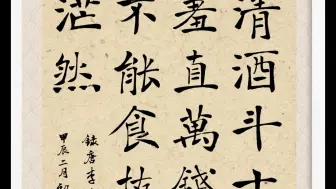 清酒斗十
羞直萬錢
不能食拔
茫然
錄唐李
甲辰二月